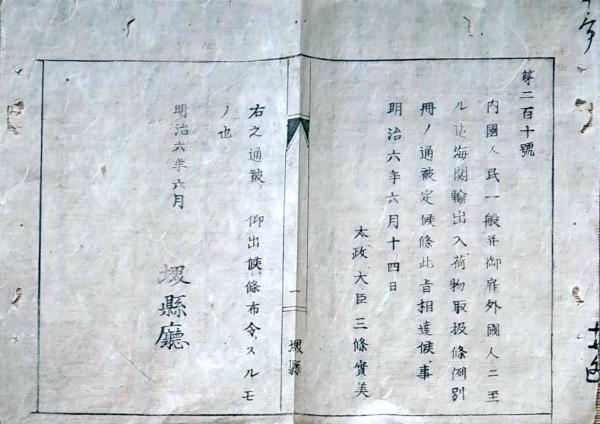 第二百十號
内國人民一般并御雇外國人ニ至
ル迄海関輸出入荷物取扱條例別
冊ノ通被定候條此旨相達候事
明治六年六月十四日
太政大臣三條實美
一
堺縣
右之通被 仰出候條布令スルモ
ノ也
明治六年六月
堺縣廳